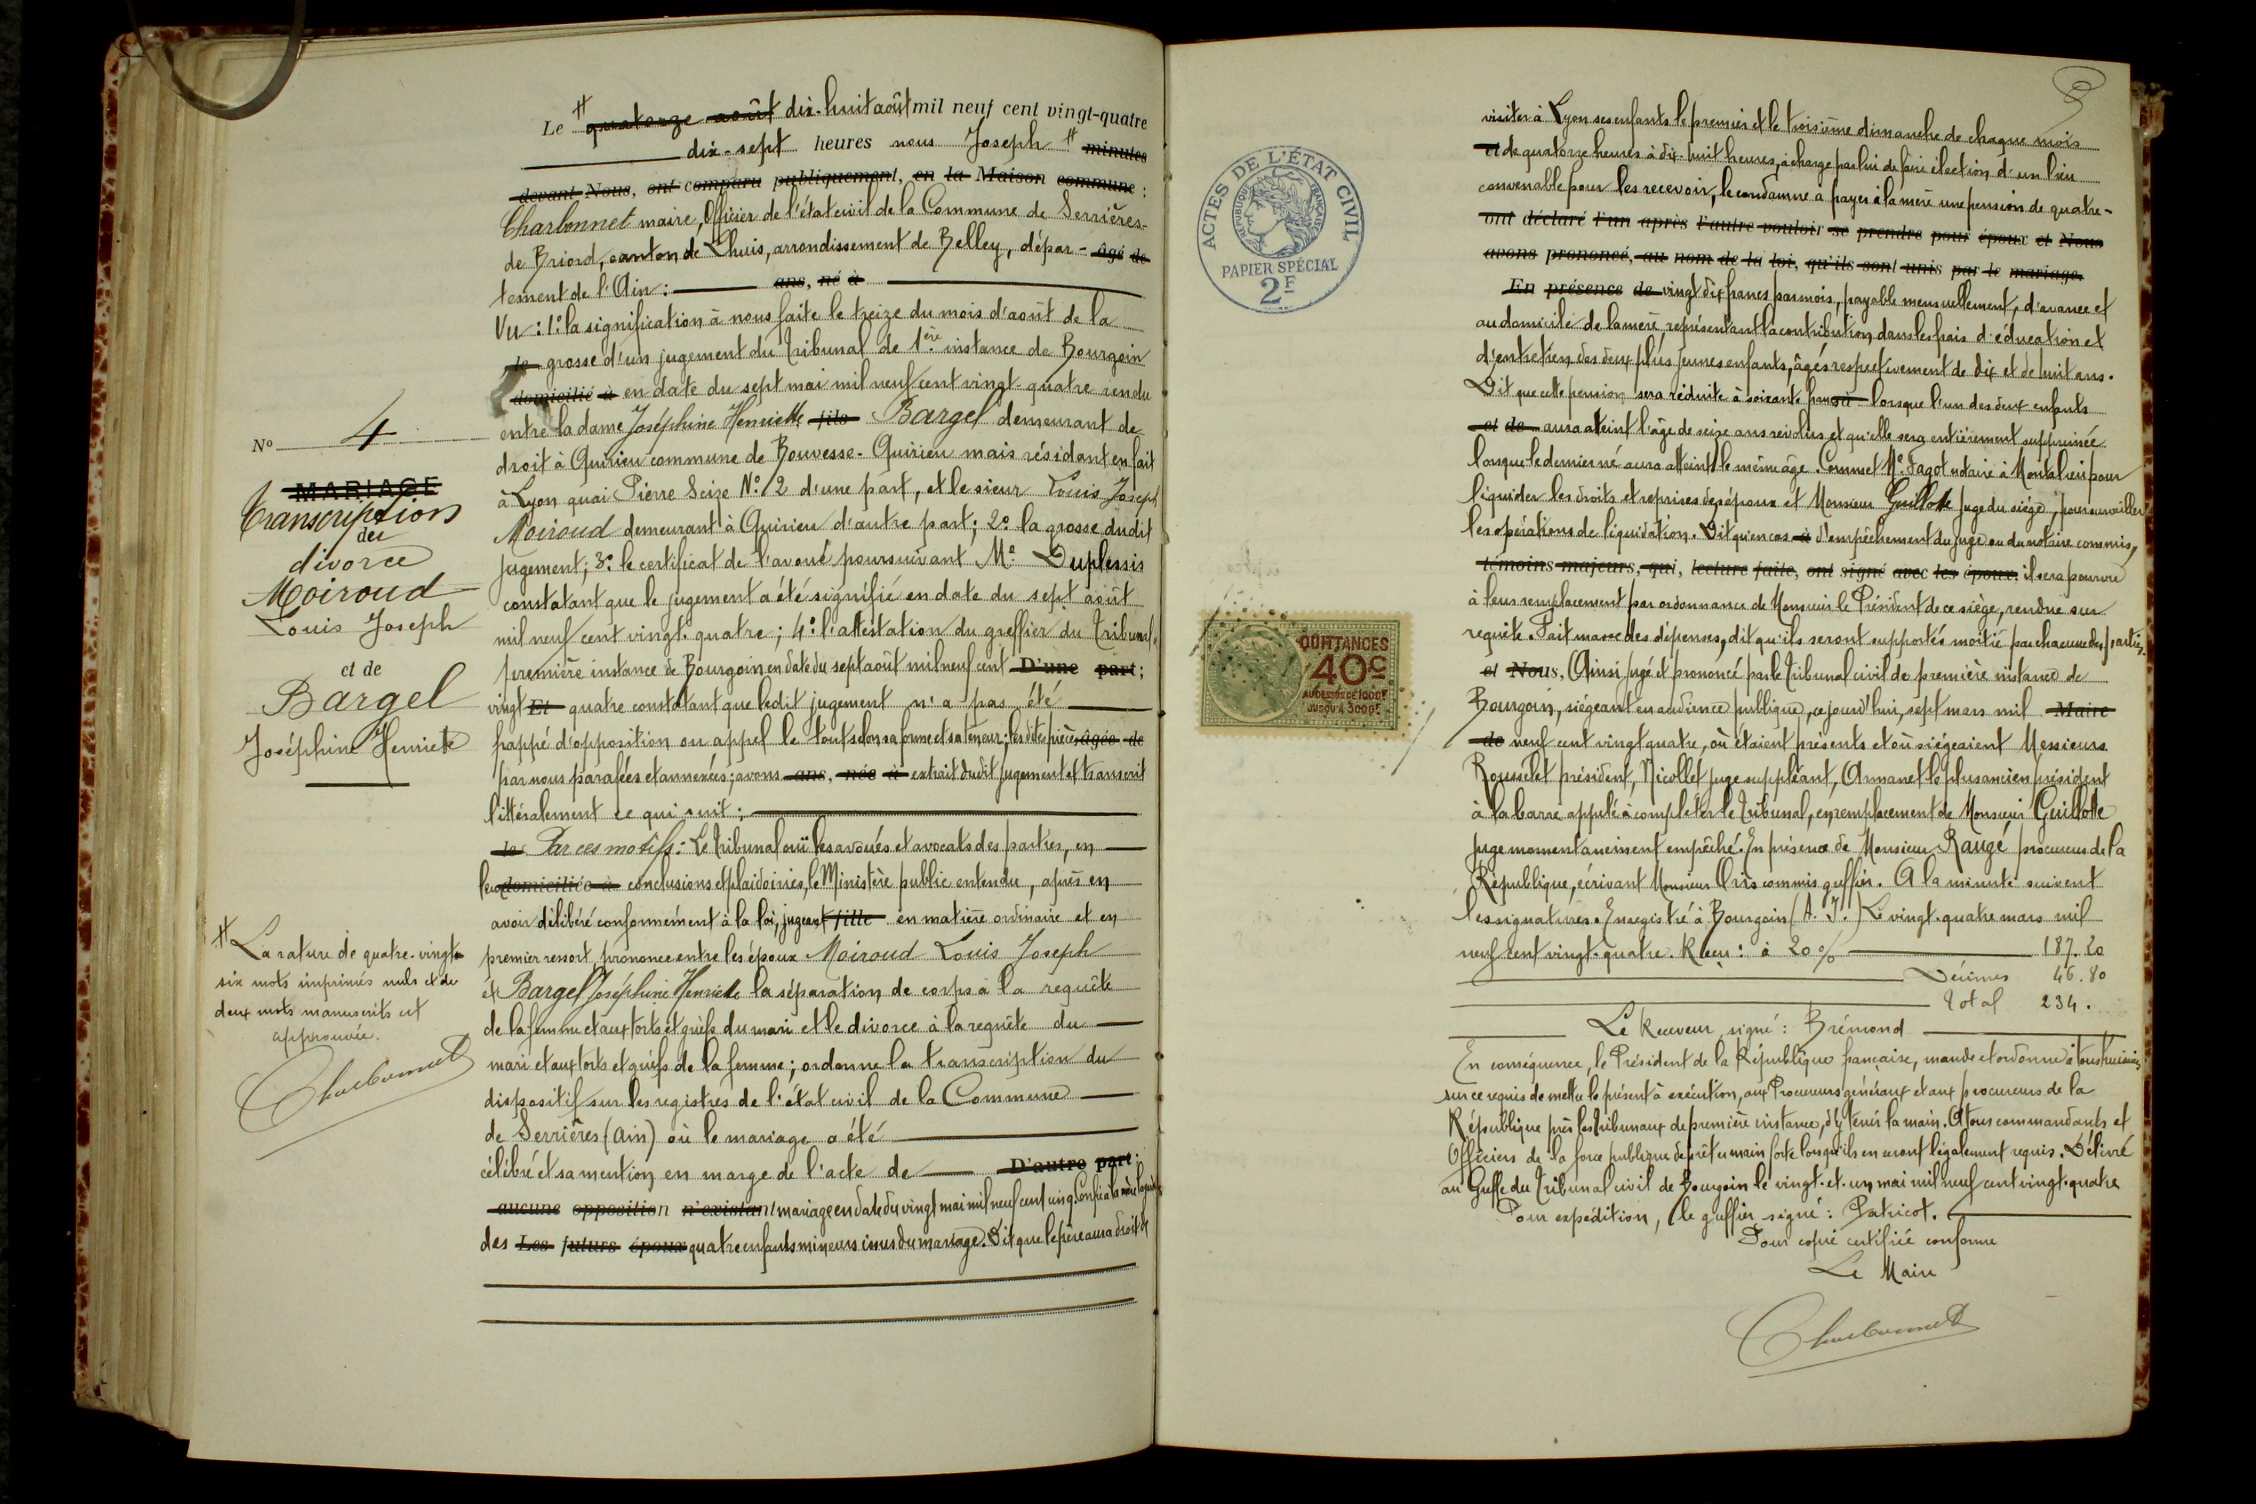 Le # quatorze août dix-huit août mil neuf cent vingt-quatre
dix-sept heures nous Joseph # minutes
devant Nous, ont comparu publiquement, en la Maison commune :
Charbonnet maire, Officier de l'état civil de la Commune de Serrières-
de Briord, canton de Lhuis, arrondissement de Belley, dépar- âgé de
tement de l'Ain : ans, né à
Vu : 1º la signification à nous faite le treize du mois d'août de la
le grosse d'un jugement du Tribunal de 1ère instance de Bourgoin
domicilié à en date du sept mai mil neuf cent vingt-quatre rendu
entre la dame Joséphine Henriette fils Bargel demeurant de
droit à Quirieu commune de Bouvesse-Quirieu mais résidant en fait
à Lyon quai Pierre Scize Nº 12 d'une part, et le sieur Louis Joseph
Moiroud demeurant à Quirieu d'autre part ; 2º la grosse dudit
jugement ; 3º le certificat de l'avoué poursuivant Me Duplessis
constatant que le jugement a été signifié en date du sept août
mil neuf cent vingt-quatre ; 4º l'attestation du greffier du Tribunal
première instance de Bourgoin en date du sept août mil neuf cent D'une part ;
vingt Et quatre constatant que ledit jugement n'a pas été
frappé d'opposition ou appel le tout selon sa forme et sa teneur ; lesdites pièces âgée de
par nous parafées et annexées ; avons ans, née à extrait dudit jugement et transcrit
littéralement ce qui suit :
le Par ces motifs : Le Tribunal ouï les avoués et avocats des parties, en
leurs domiciliée à conclusions et plaidoiries, le Ministère public entendu, après en
avoir délibéré conformément à la loi, jugeant fille en matière ordinaire et en
premier ressort, prononce entre les époux Moiroud Louis Joseph
et Bargel Joséphine Henriette la séparation de corps à la requête
de la femme et aux torts et griefs du mari et le divorce à la requête du
mari et aux torts et griefs de la femme ; ordonne la transcription du
dispositif sur les registres de l'état civil de la Commune
de Serrières (Ain) où le mariage a été
célébré et sa mention en marge de l'acte de D'autre part ;
aucune opposition n'existant mariage en date du vingt mai mil neuf cent cinq. Confie à la mère la garde
des Les futurs époux quatre enfants mineurs issus du mariage. Dit que le père aura droit de
Nº 4
MARIAGE
Transcription
de
divorce
Moiroud
Louis Joseph
et de
Bargel
Joséphine Henriete
# La rature de quatre-vingt-
six mots imprimés nuls et de
deux mots manuscrits est
approuvée.
Charbonnet
ACTES DE L'ÉTAT CIVIL
RÉPUBLIQUE FRANÇAISE
PAPIER SPÉCIAL
2F
QUITTANCES
40c
AU DESSUS DE 1000F
JUSQU'À 3000F
visiter à Lyon ses enfants le premier et le troisième dimanche de chaque mois
et de quatorze heures à dix-huit heures, à charge par lui de faire élection d'un lieu
convenable pour les recevoir, le condamne à payer à la mère une pension de quatre-
ont déclaré l'un après l'autre vouloir se prendre pour époux et Nous
avons prononcé, au nom de la loi, qu'ils sont unis par le mariage.
En présence de vingt dix francs par mois, payable mensuellement, d'avance et
au domicile de la mère, représentant la contribution dans les frais d'éducation et
d'entretien des deux plus jeunes enfants, âgés respectivement de dix et de huit ans.
Dit que cette pension sera réduite à soixante francs à lorsque l'un des deux enfants
et de aura atteint l'âge de seize ans révolus et qu'elle sera entièrement supprimée
lorsque le dernier né aura atteint le même âge. Commet Me Fagot notaire à Montalieu pour
liquider les droits et reprises des époux et Monsieur Guillotte juge du siège, pour surveiller
les opérations de liquidation. Dit qu'en cas à d'empêchement du juge ou du notaire commis,
témoins majeurs, qui, lecture faite, ont signé avec les époux, il sera pourvu
à leur remplacement par ordonnance de Monsieur le Président de ce siège, rendue sur
requête. Fait masse des dépenses, dit qu'ils seront supportés moitié par chacune des parties.
et Nous, Ainsi jugé et prononcé par le Tribunal civil de première instance de
Bourgoin, siégeant en audience publique, ce jourd'hui, sept mars mil Maire
de neuf cent vingt quatre, où étaient présents et où siégeaient Messieurs
Rousselet président, Nicollet juge suppléant, Armanet le plus ancien président
à la barre appelé à compléter le Tribunal, en remplacement de Monsieur Guillotte
juge momentanément empêché. En présence de Monsieur Rauzé procureur de la
République, écrivant Monsieur Oris commis greffier. A la minute suivent
les signatures. Enregistré à Bourgoin (A. J.) Le vingt-quatre mars mil
neuf cent vingt-quatre. Reçu : à 20 % 187.20
Décimes 46.80
Total 234.
Le Receveur, signé : Brémond
En conséquence, le Président de la République française, mande et ordonne à tous huissiers
sur ce requis de mettre le présent à exécution, aux Procureurs généraux et aux procureurs de la
République près les Tribunaux de première instance, d'y tenir la main. A tous commandants et
Officiers de la force publique de prêter main forte lorsqu'ils en seront légalement requis. Délivré
au Greffe du Tribunal civil de Bourgoin le vingt-et-un mai mil neuf cent vingt-quatre
Pour expédition, le greffier signé : Patricot.
Pour copie certifiée conforme
Le Maire
Charbonnet